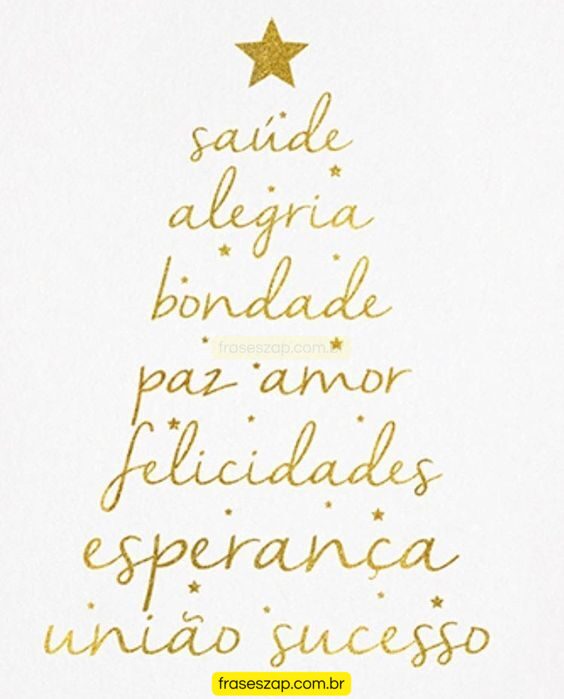 saúde
alegria
bondade
fraseszap.com.br
paz amor
felicidades
esperança
união sucesso
fraseszap.com.br